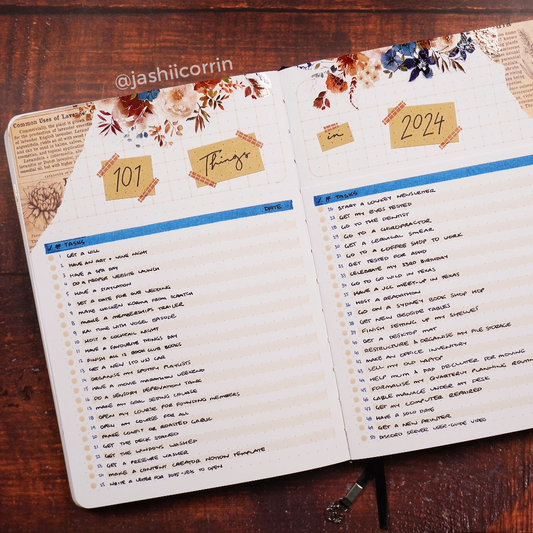 @jashiicorrin
Common Uses of Laven
101
Things
in
2024
✓ # TASKS DATE
1 GET A WILL
2 HAVE AN ART & WINE NIGHT
3 HAVE A SPA DAY
4 DO A PROPER WEBSITE LAUNCH
5 HAVE A STAYCATION
6 SET A DATE FOR OUR WEDDING
7 MAKE CHICKEN KORMA FROM SCRATCH
8 MAKE A MEMBERSHIPS TRAILER
9 KAI TIME WITH VOGEL EPISODE
10 HOST A COCKTAIL NIGHT
11 HAVE A FAVOURITE THINGS DAY
12 FINISH ALL 12 BOOK CLUB BOOKS
13 GET A NEW (TO US) CAR
14 ORGANISE MY SPOTIFY PLAYLISTS
15 HAVE A MOVIE MARATHON WEEKEND
16 DO A SENSORY DEPRIVATION TANK
17 MAKE MY GOAL SETTING COURSE
18 OPEN MY COURSE FOR FOUNDING MEMBERS
19 OPEN MY COURSE FOR ALL
20 MAKE CONFIT OR ROASTED GARLIC
21 GET THE DECK STAINED
22 GET THE WINDOWS WASHED
23 GET A PRESSURE WASHER
24 MAKE A CONTENT CREATOR NOTION TEMPLATE
25 WRITE A LETTER FOR 2025-JESS TO OPEN
✓ # TASKS
26 START A LOWKEY NEWSLETTER
27 GET MY EYES TESTED
28 GO TO THE DENTIST
29 GO TO A CHIROPRACTOR
30 GET A CERVICAL SMEAR
31 GO TO A COFFEE SHOP TO WORK
32 GET TESTED FOR ADHD
33 CELEBRATE MY 33RD BIRTHDAY
34 GO TO GO WILD IN TEXAS
35 HAVE A JCC MEET-UP IN TEXAS
36 HOST A READATHON
37 GO ON A SYDNEY BOOK SHOP HOP
38 GET NEW BEDSIDE TABLES
39 FINISH SETTING UP MY SHELVES
40 GET A DESKTOP MAT
41 RESTRUCTURE & ORGANISE MY FILE STORAGE
42 MAKE AN OFFICE INVENTORY
43 SELL MY OLD LAPTOP
44 HELP MUM & DAD DECLUTTER FOR MOVING
45 FORMALISE MY QUARTERLY PLANNING ROUTIN
46 CABLE MANAGE UNDER MY DESK
47 GET MY COMPUTER REPAIRED
48 HAVE A SOLO DATE
49 GET A NEW PRINTER
50 DISCORD SERVER USER-GUIDE VIDEO